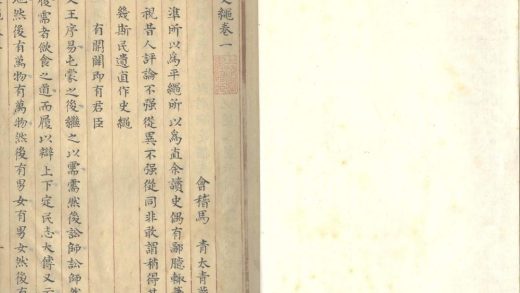 史繩卷一
會稽馬 青太青
準所以爲平繩所以爲直余讀史偶有鄙臆輒
視昔人評論不强從異不强從同非敢謂稍得其
幾斯民遺直作史繩
有開闢即有君臣
文王序易屯蒙之後繼之以需需然後訟師訟師然
後需者飲食之道而履以辯上下定民志大傳又云
地然後有萬物有萬物然後有男女有男女然後